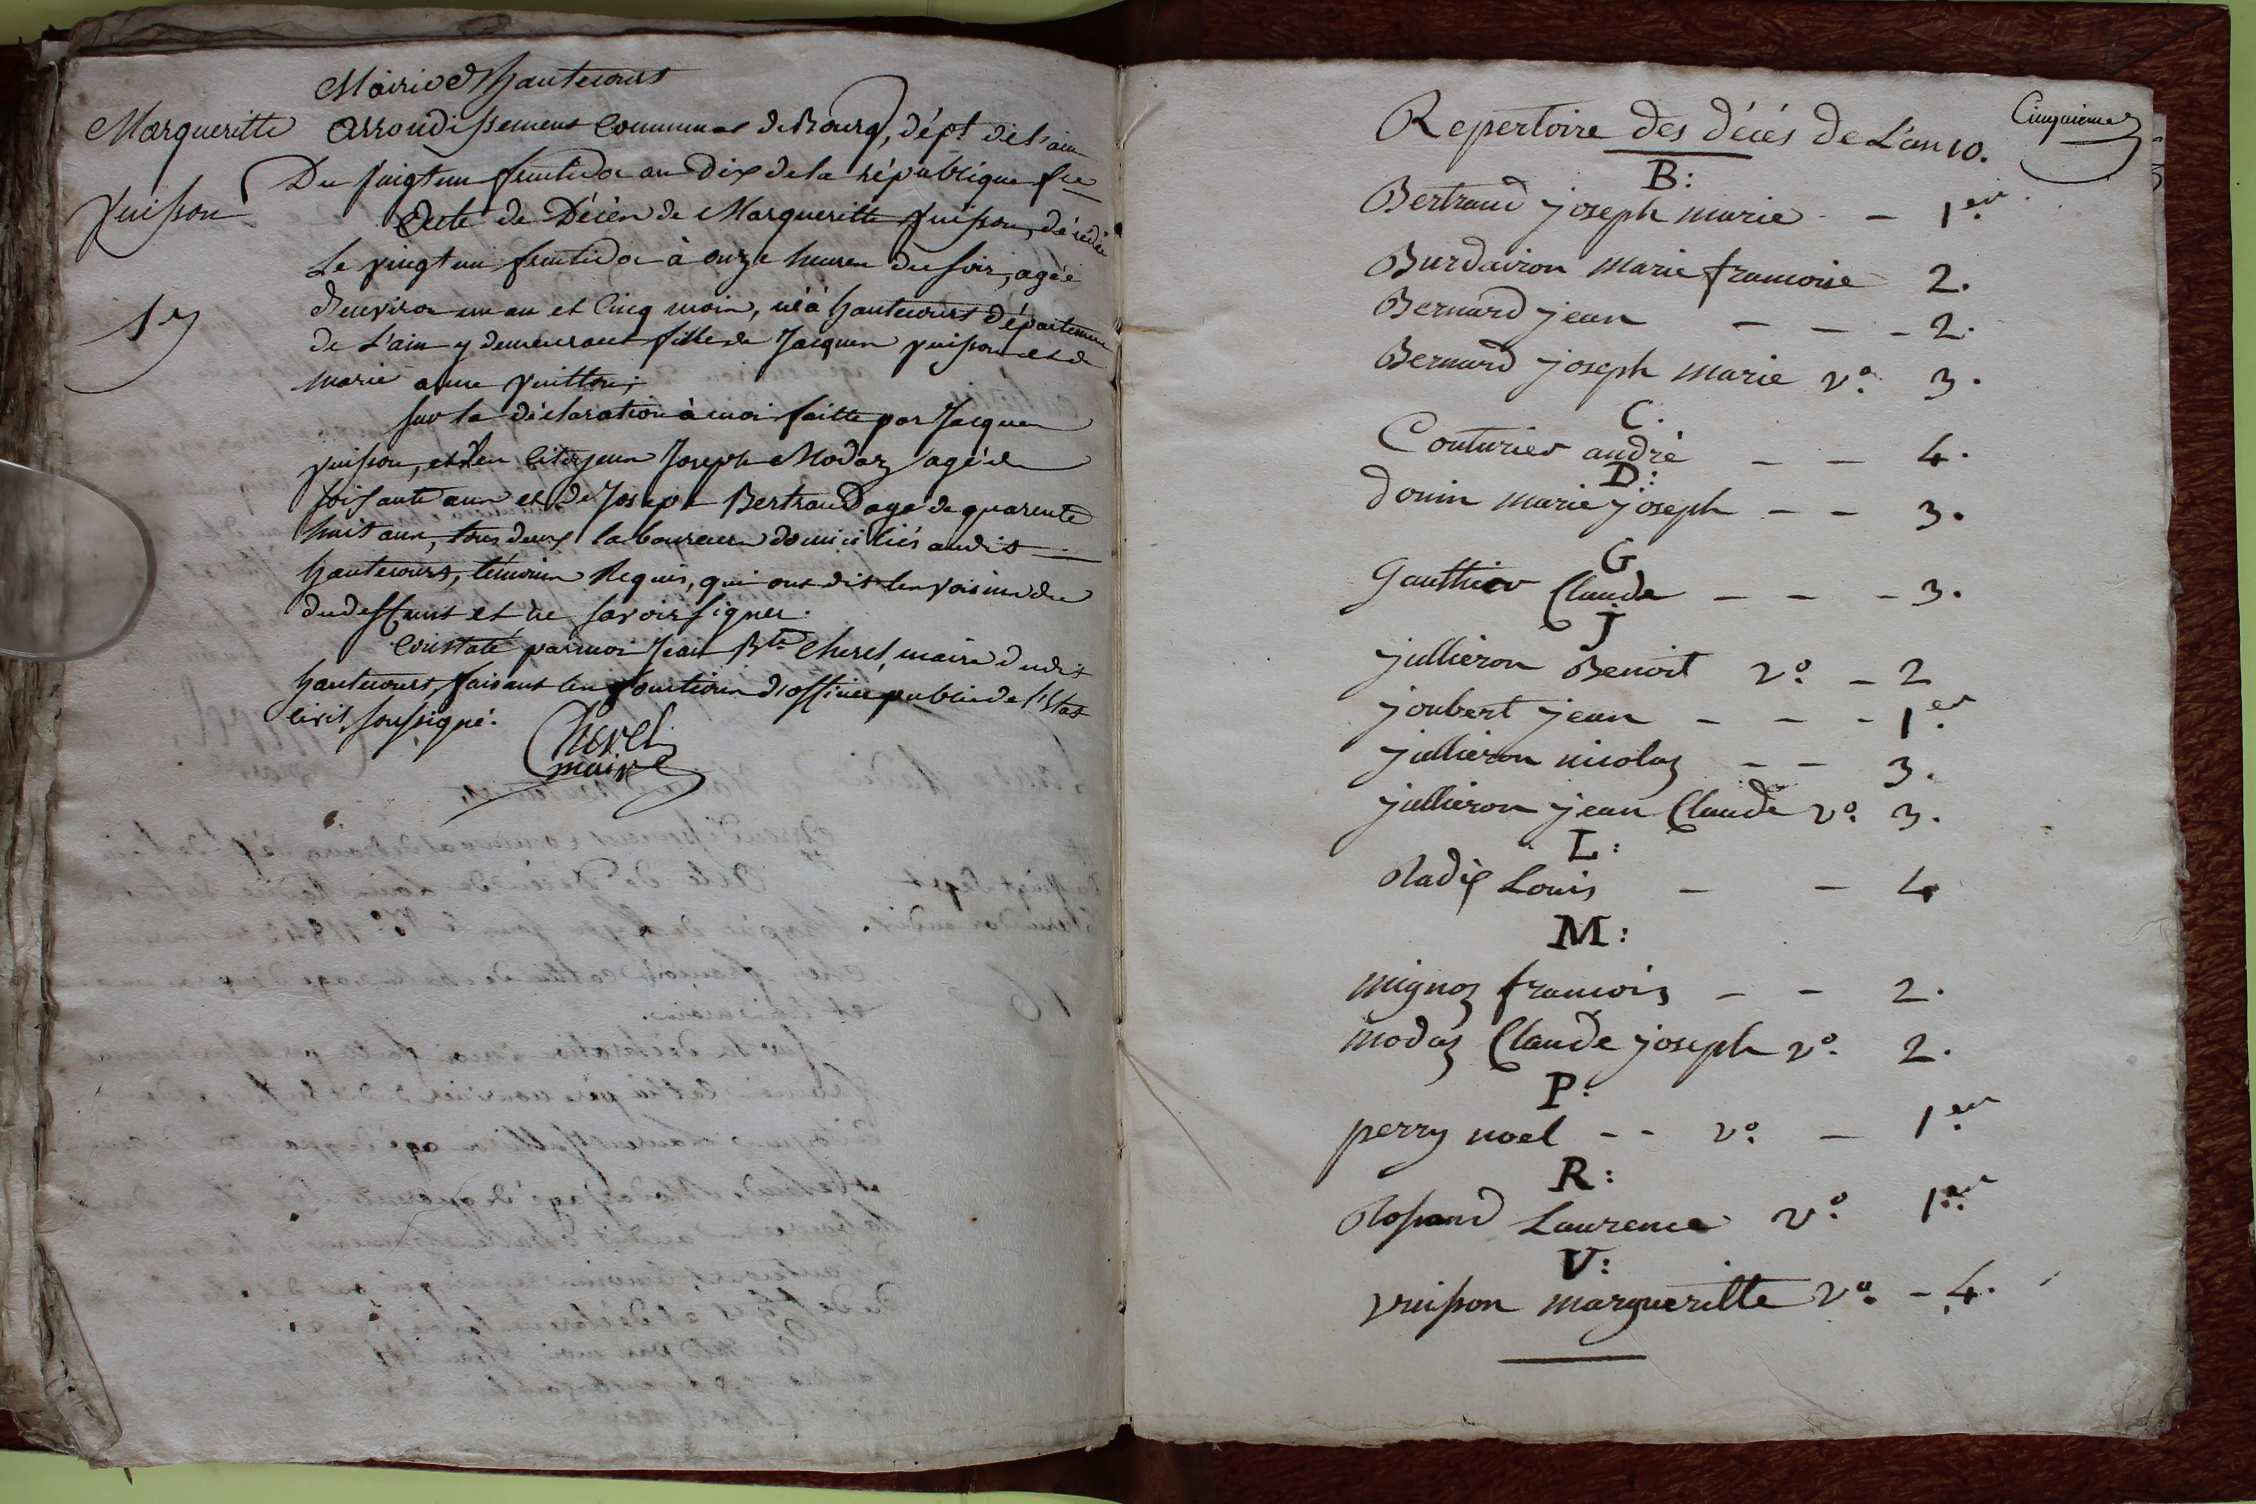 Mairie d'hautecourt
Margueritte
Vuisson
17
Arrondissement Communal de Bourg, dépt de l'ain
Du vingt un fructidor an dix de la république fse
Acte de Décès de Margueritte Vuisson, décédée
Le vingt un fructidor à onze heures du soir, agée
d'environ un an et Cinq mois, née à hautecourt département
de L'ain y demeurant fille de Jacques Vuisson et de
marie anne Vuitton;
sur la déclaration à moi faitte par Jacques
Vuisson, et les Citoyens Joseph Modas agé de
soissante ans et de Joseph Bertrand age de quarente
huit ans, tous deux laboureurs domiciliés audit
hautecourt, témoins Requis, qui ont dit les voisins de
du deffunt et ne savoir signer.
Constaté par moi Jean Bte Cherel, maire dudit
hautecourt, faisant les fonctions d'officier public de l'Etat
civil soussigné.
Cherel
maire
Cinquieme
Repertoire des décés de L'an 10.
B:
Bertrand joseph marie - 1er
Burdairon marie francoise 2.
Bernard jean - - - 2.
Bernard joseph marie vo. 3.
C.
Couturier andré - - 4.
D:
donin marie joseph - - 3.
G
Gauthier Claude - - - 3.
J
jullieron Benoit vo. - 2
joubert jean - - - 1er
jullieron nicolas - - 3.
jullieron jean Claude vo. 3.
L:
Radix Louis - - 4
M:
mignoz francois - - 2.
modas Claude joseph vo. 2.
P:
perry noel - - vo. - 1er
R:
Rossand Laurence vo. 1er
V:
vuisson margueritte vo. - 4.